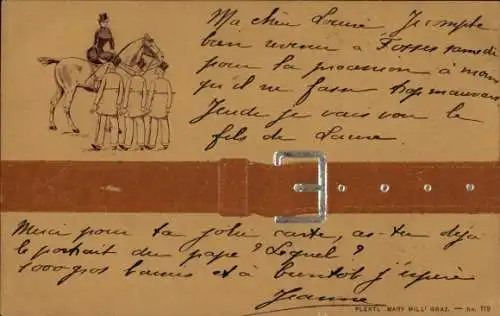 Ma chère Louise Je compte
bien revenir à Fosses samedi
pour la procession à moins
qu'il ne fasse trop mauvais
Jeudi je vais voir le
fils de Laure
Merci pour ta jolie carte, as-tu déjà
le portrait du pape? Lequel?
1000 gros baisers et à bientôt j'espère
Jeanne
PLENTL "MARY MILL" GRAZ. — No. 119